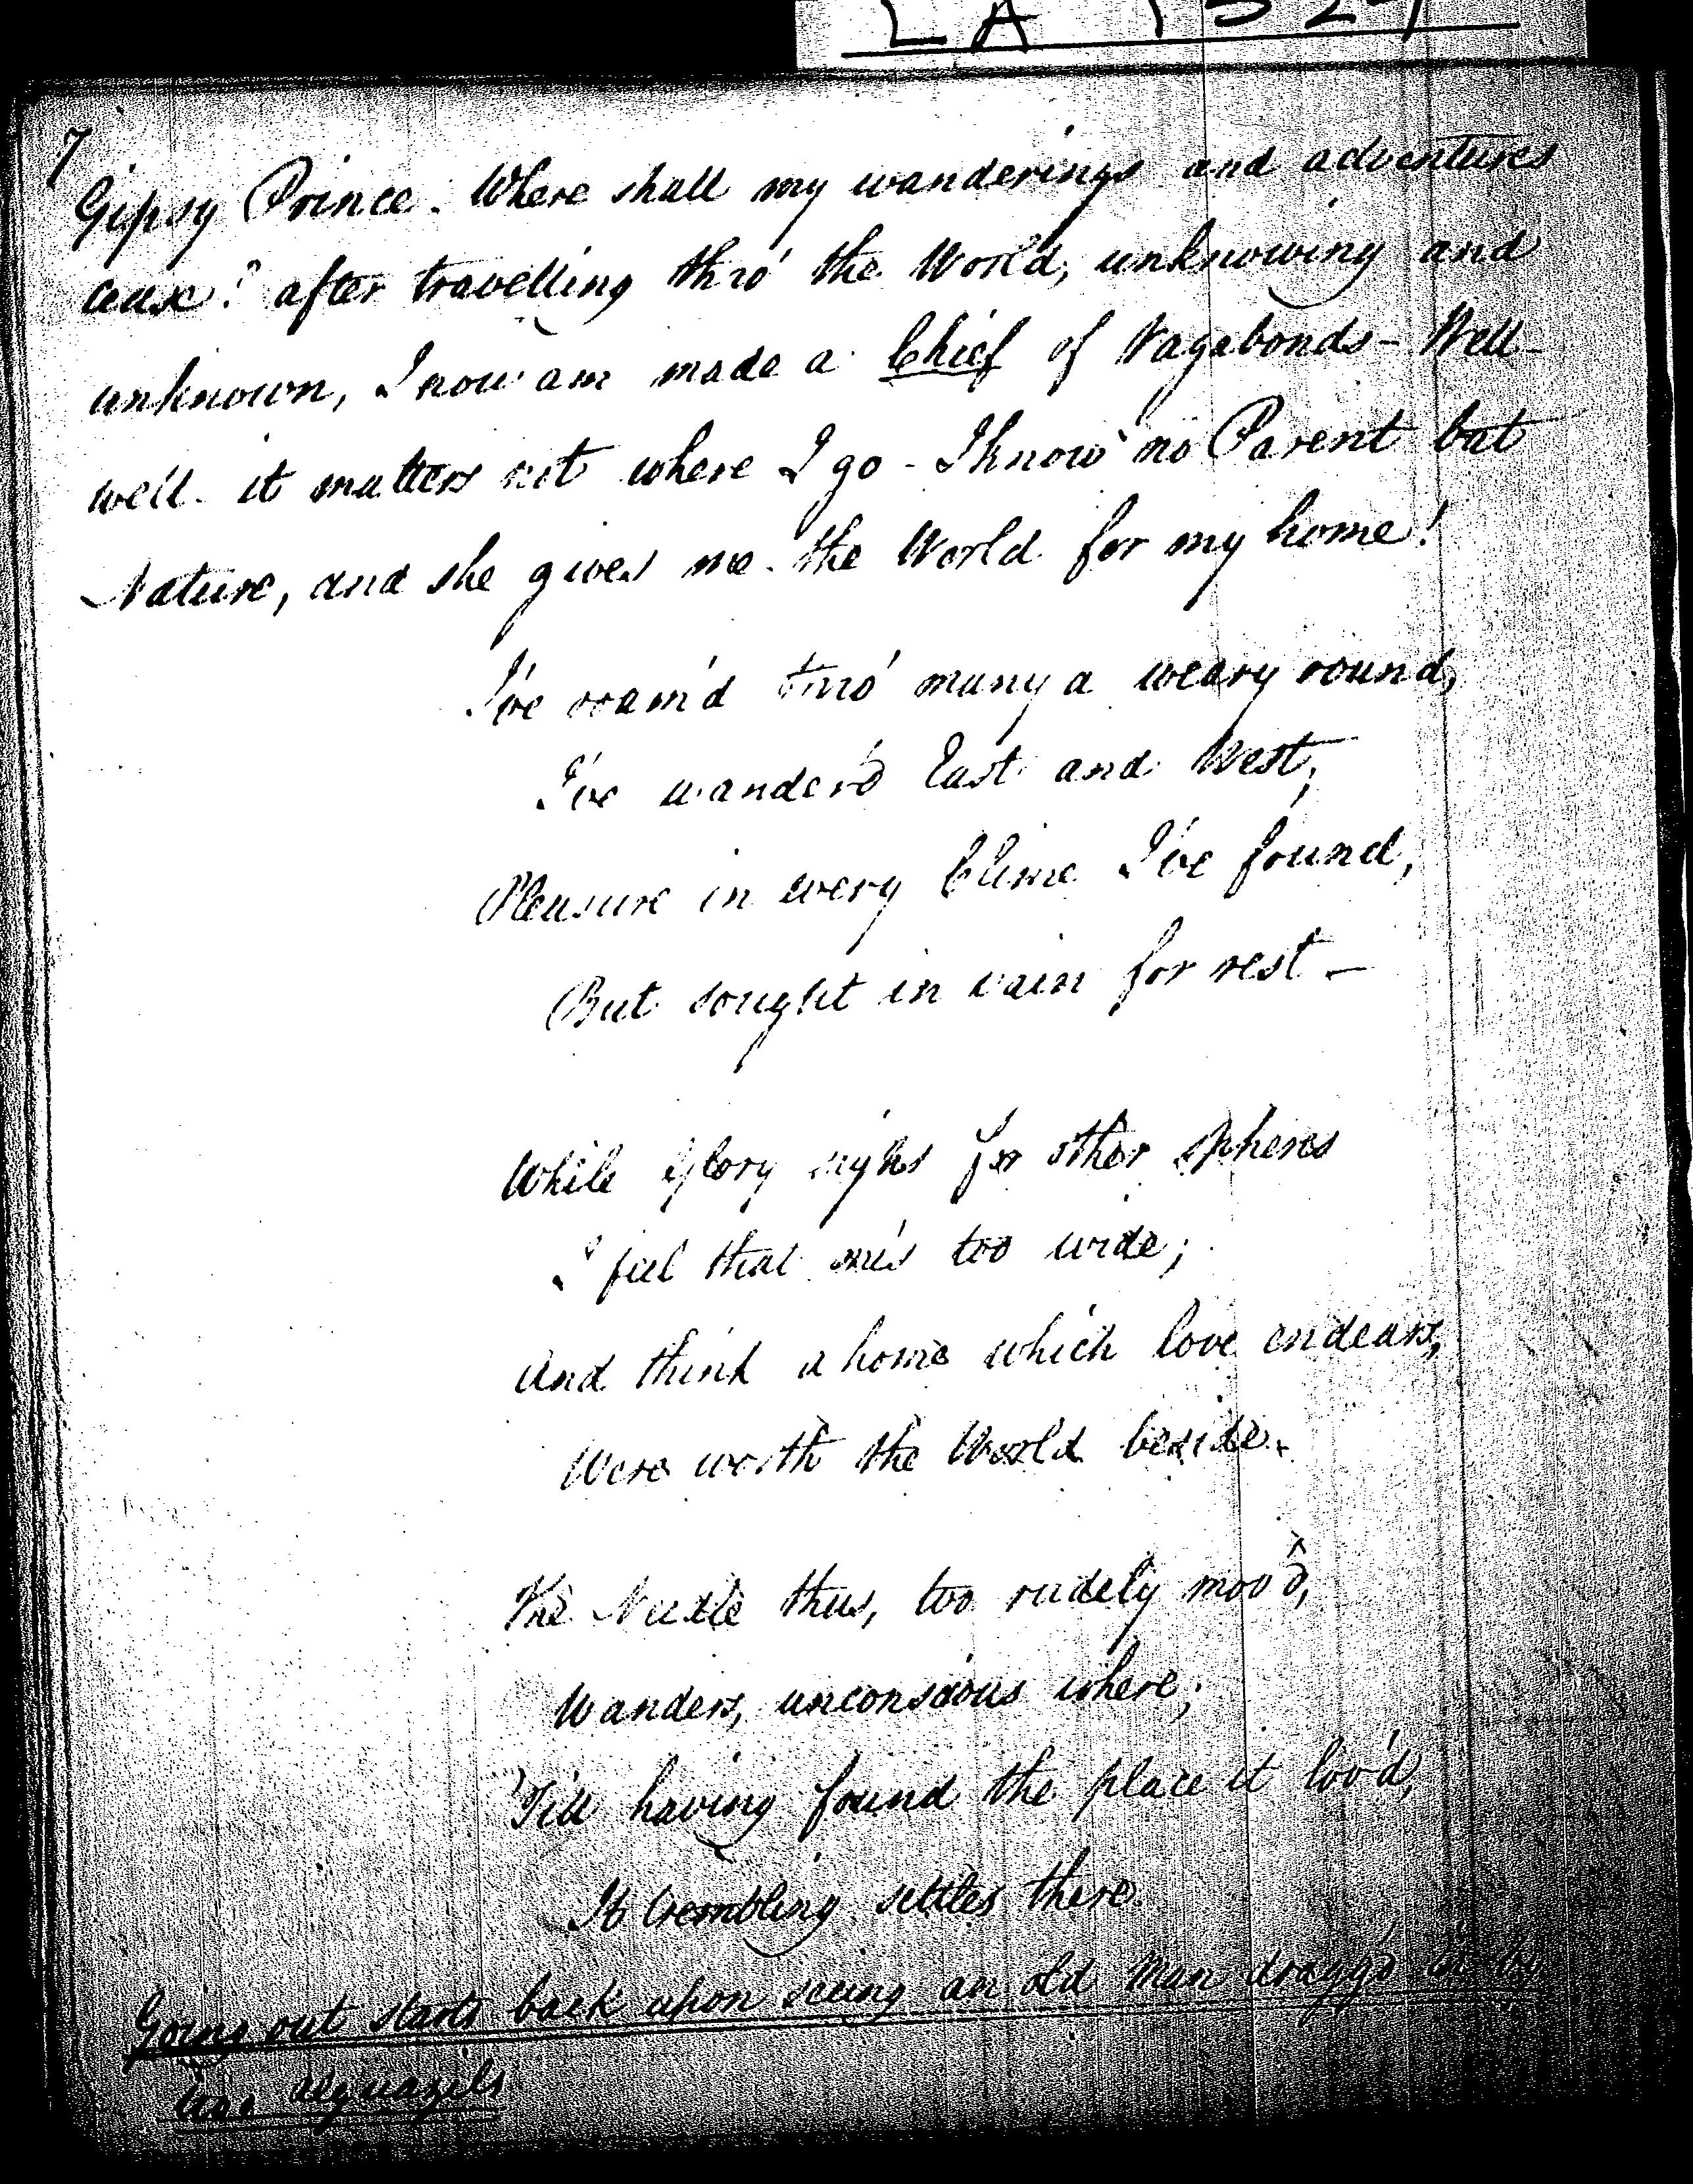 LA 1324
7
Gipsy Prince. Where shall my wanderings and adventures
cease? after travelling thro' the World, unknowing and
unknown, I now am made a Chief of Vagabonds - Well -
well - it matters not where I go - I know no Parent but
Nature, and she gives me the World for my home!
I've roam'd thro' many a weary round,
I've wander'd East and West;
Pleasure in every Clime I've found,
But sought in vain for rest -
While Glory sighs for other spheres
I feel that one's too wide;
And think a home which love endears,
Were worth the World beside.
The Needle thus, too rudely mov'd,
Wanders, unconscious where;
'Till having found the place it lov'd,
It trembling settles there.
Going out starts back upon seeing an old Man dragg'd in by
two Alguazils